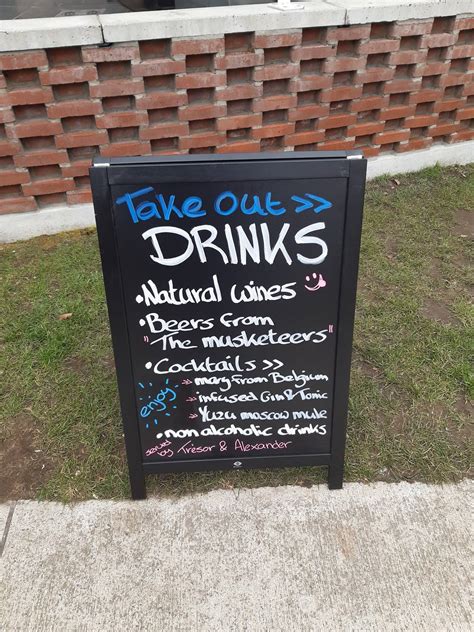 Take Out >>
DRINKS
•Natural wines
•Beers from
"The musketeers"
•Cocktails >>
» mary from Belgium
» infused Gin & Tonic
» Yuzu moscow mule
•non alcoholic drinks
enjoy
served by Trésor & Alexander